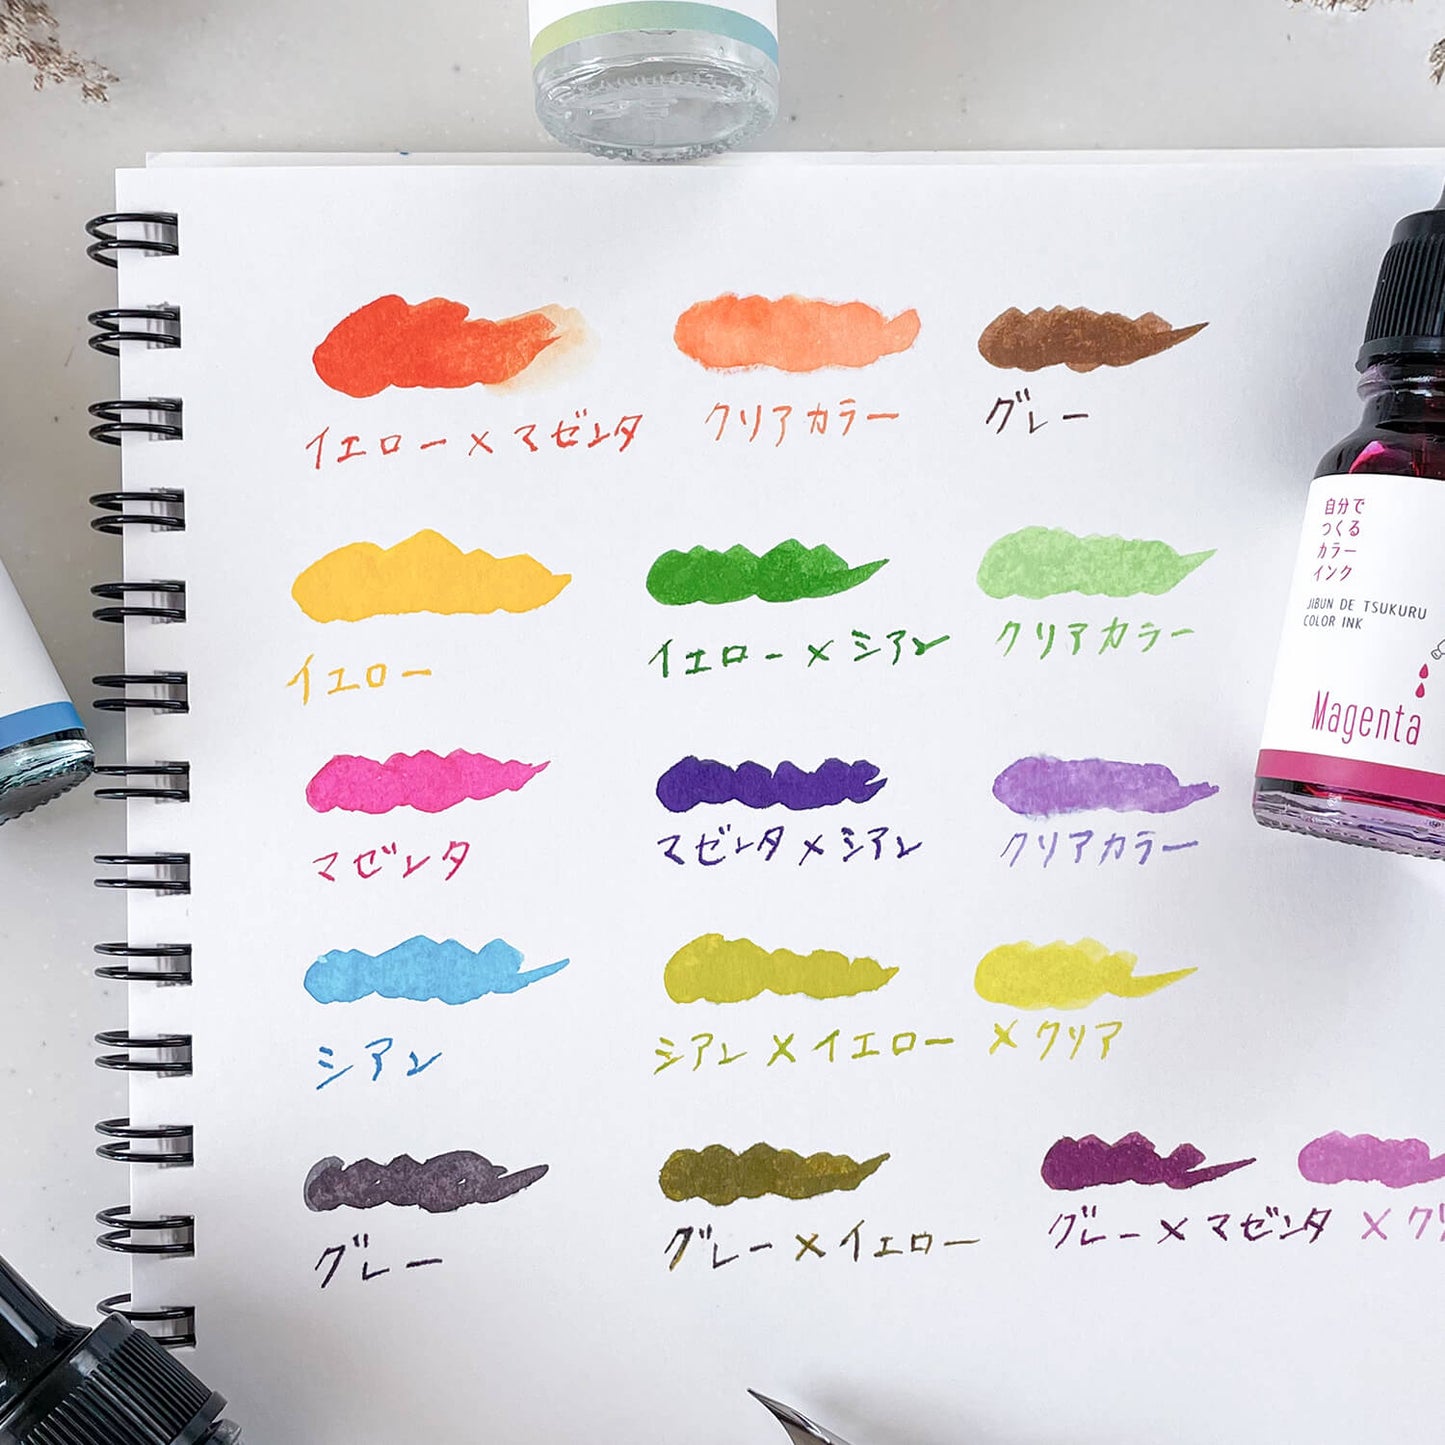 イエロー×マゼンタ
クリアカラー
グレー
イエロー
イエロー×シアン
クリアカラー
マゼンタ
マゼンタ×シアン
クリアカラー
シアン
シアン×イエロー
×クリア
グレー
グレー×イエロー
グレー×マゼンタ
×クリ
自分で
つくる
カラー
インク
JIBUN DE TSUKURU
COLOR INK
Magenta